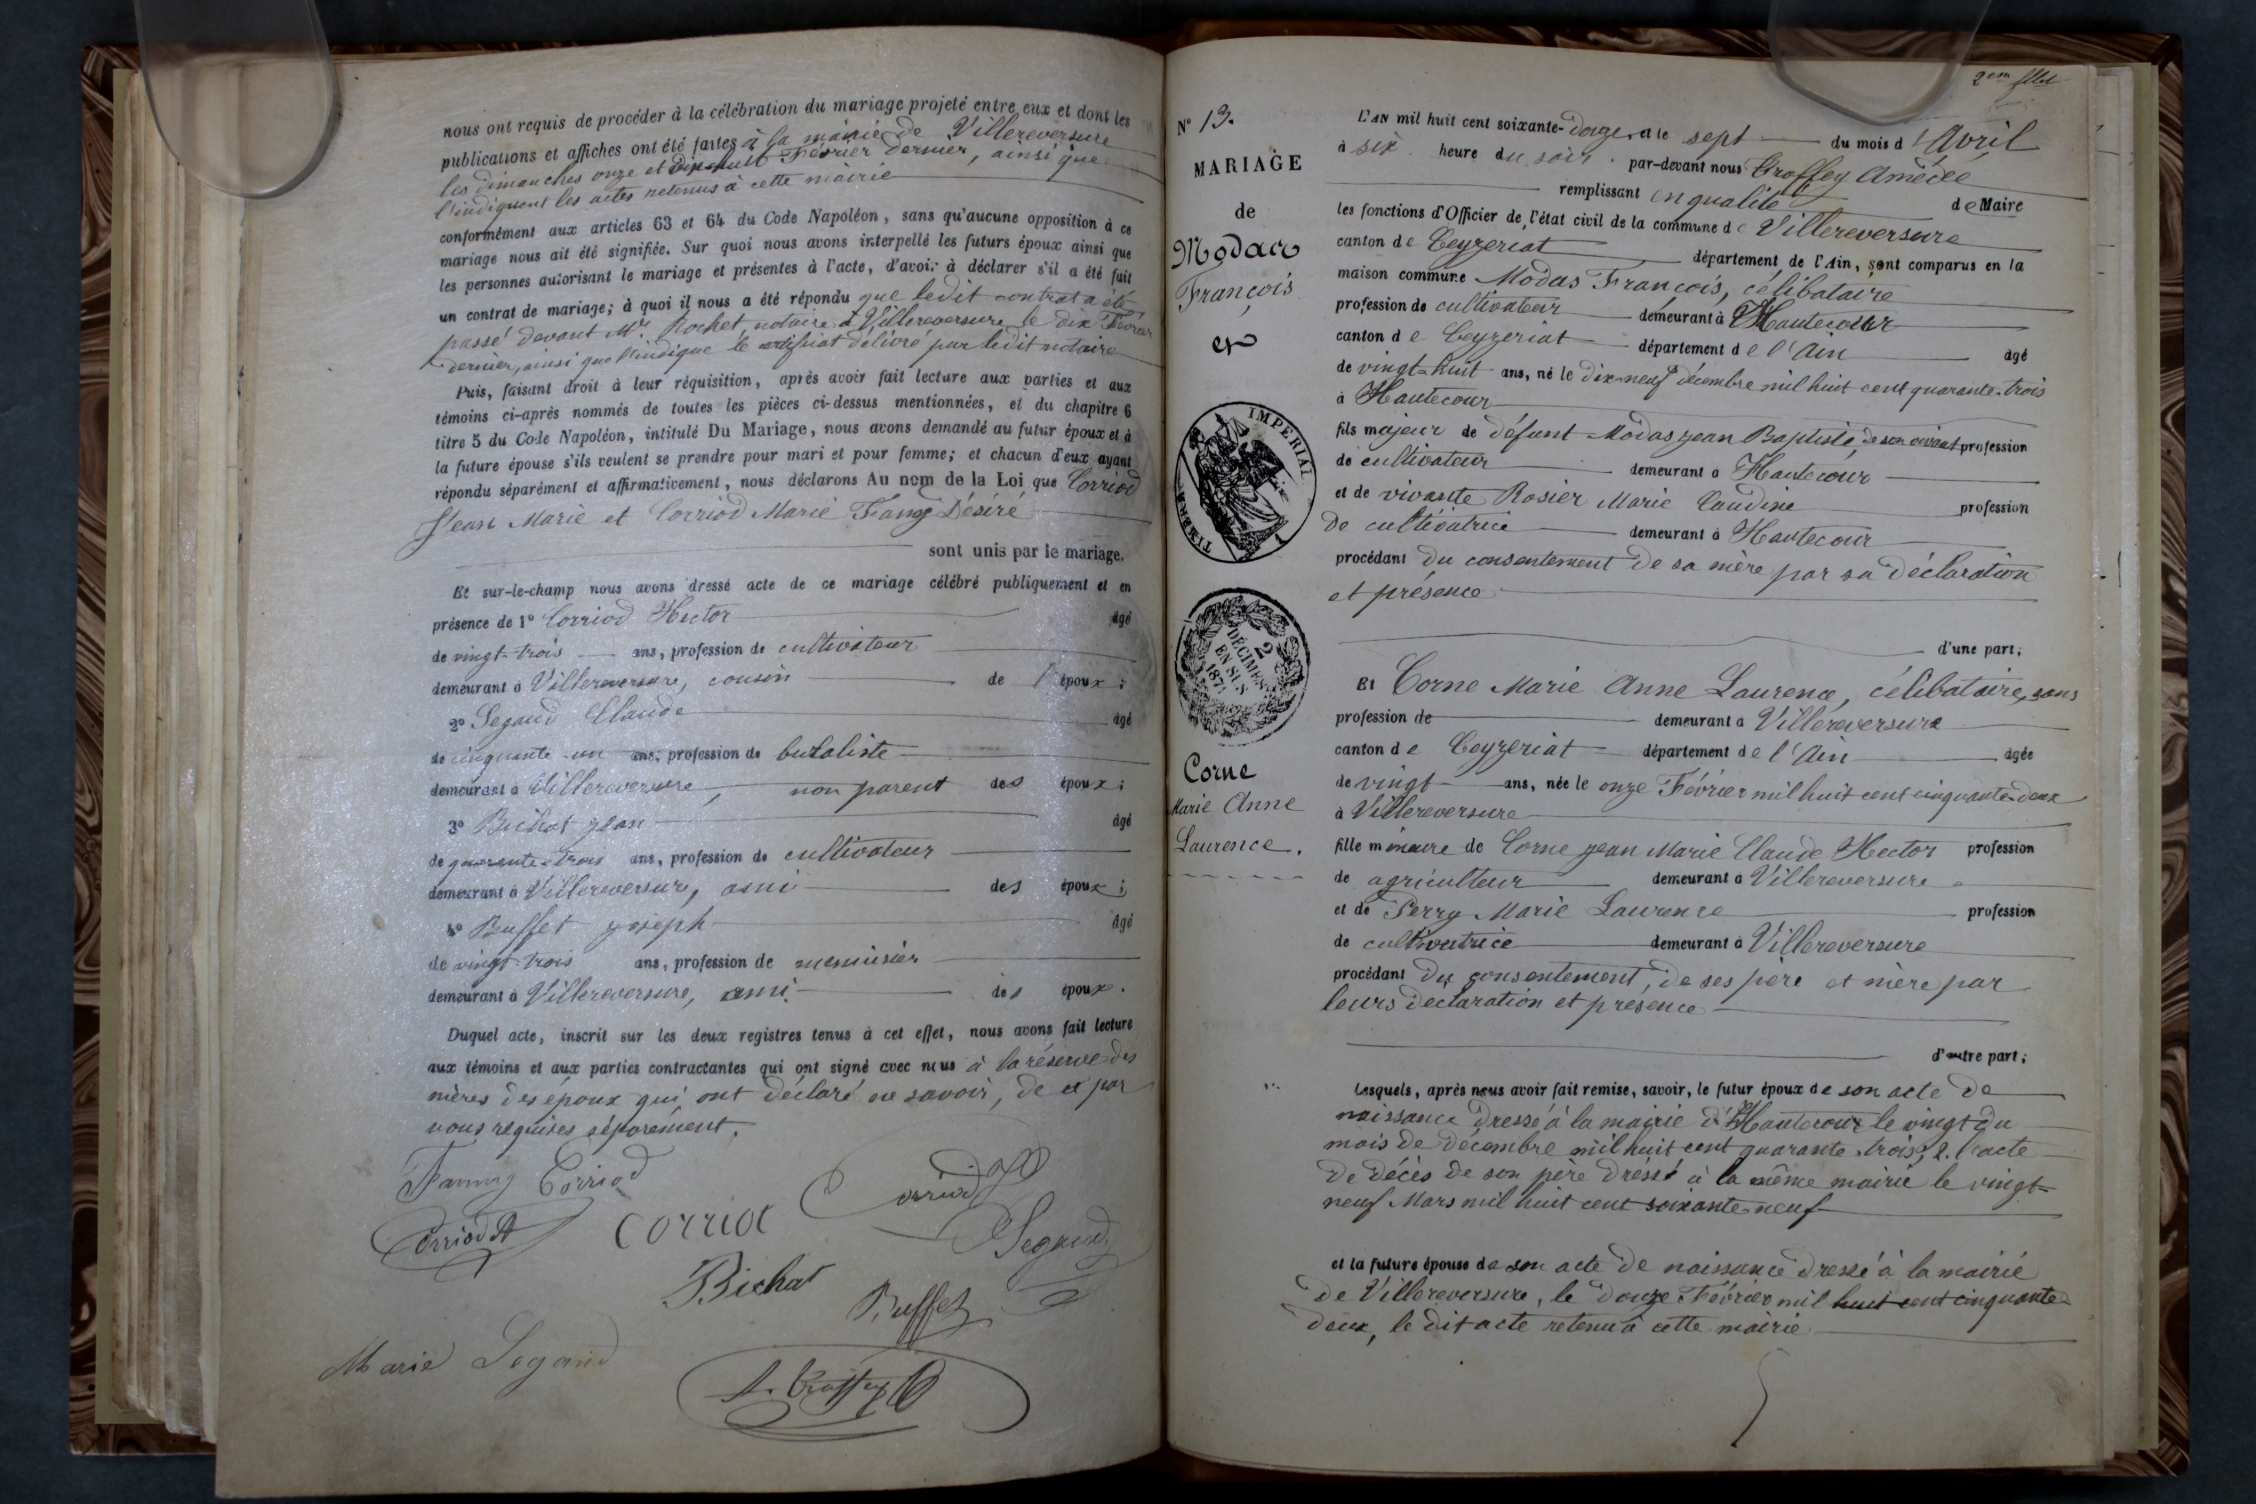 nous ont requis de procéder à la célébration du mariage projeté entre eux et dont les
publications et affiches ont été faites à la mairie de Villereversure
les dimanches onze et dix-huit Février dernier, ainsi que
l'indiquent les actes retenus à cette mairie
conformément aux articles 63 et 64 du Code Napoléon, sans qu'aucune opposition à ce
mariage nous ait été signifiée. Sur quoi nous avons interpellé les futurs époux ainsi que
les personnes autorisant le mariage et présentes à l'acte, d'avoir à déclarer s'il a été fait
un contrat de mariage; à quoi il nous a été répondu que ledit contrat a été
passé devant Me Rochet, notaire à Villereversure le dix Février
dernier, ainsi que l'indique le certificat délivré par ledit notaire
Puis, faisant droit à leur réquisition, après avoir fait lecture aux parties et aux
témoins ci-après nommés de toutes les pièces ci-dessus mentionnées, et du chapitre 6
titre 5 du Code Napoléon, intitulé Du Mariage, nous avons demandé au futur époux et à
la future épouse s'ils veulent se prendre pour mari et pour femme; et chacun d'eux ayant
répondu séparément et affirmativement, nous déclarons Au nom de la Loi que Corriod
Jean Marie et Corriod Marie Fany Désiré
sont unis par le mariage.
Et sur-le-champ nous avons dressé acte de ce mariage célébré publiquement et en
présence de 1° Corriod Hector âgé
de vingt-trois ans, profession de cultivateur
demeurant à Villereversure, cousin de l'époux;
2° Segaud Claude âgé
de cinquante-un ans, profession de buraliste
demeurant à Villereversure, non parent des époux;
3° Bichat Jean âgé
de quarante-trois ans, profession de cultivateur
demeurant à Villereversure, ami des époux;
4° Buffet Joseph âgé
de vingt-trois ans, profession de menuisier
demeurant à Villereversure, ami des époux.
Duquel acte, inscrit sur les deux registres tenus à cet effet, nous avons fait lecture
aux témoins et aux parties contractantes qui ont signé avec nous à la réserve des
mères des époux qui ont déclaré ne savoir, de ce par
nous requises séparément.
Fanny Corriod
Corriod
Corriod
Corriod
Segaud
Bichat
Buffet
Marie Segaud
A. Troffey
2em
N° 13.
MARIAGE
de
Modas
François
et
TIMBRE IMPERIAL
2 DÉCIMES EN SUS 1871
Corne
Marie Anne
Laurence.
L'AN mil huit cent soixante-douze, et le sept du mois d'Avril
à six heure du soir. par-devant nous Troffey Amédée
remplissant en qualité de Maire
les fonctions d'Officier de l'état civil de la commune de Villereversure
canton de Ceyzeriat département de l'Ain, sont comparus en la
maison commune Modas François, célibataire
profession de cultivateur demeurant à Hautecour
canton de Ceyzeriat département de l'Ain âgé
de vingt-huit ans, né le dix-neuf décembre mil huit cent quarante-trois
à Hautecour
fils majeur de défunt Modas Jean Baptiste, de son vivant profession
de cultivateur demeurant à Hautecour
et de vivante Rosier Marie Caudine profession
de cultivatrice demeurant à Hautecour
procédant du consentement de sa mère par sa déclaration
et présence
d'une part;
Et Corne Marie Anne Laurence, célibataire, sans
profession de demeurant à Villereversure
canton de Ceyzeriat département de l'Ain âgée
de vingt ans, née le onze Février mil huit cent cinquante-deux
à Villereversure
fille mineure de Corne Jean Marie Claude Hector profession
de agriculteur demeurant à Villereversure
et de Perry Marie Laurence profession
de cultivatrice demeurant à Villereversure
procédant du consentement, de ses père et mère par
leurs déclaration et présence
d'autre part;
Lesquels, après nous avoir fait remise, savoir, le futur époux de son acte de
naissance dressé à la mairie d'Hautecour le vingt du
mois de décembre mil huit cent quarante-trois, 2. l'acte
de décès de son père dressé à la même mairie le vingt-
neuf Mars mil huit cent soixante-neuf
et la future épouse de son acte de naissance dressé à la mairie
de Villereversure, le douze Février mil huit cent cinquante-
deux, le dit acte retenu à cette mairie